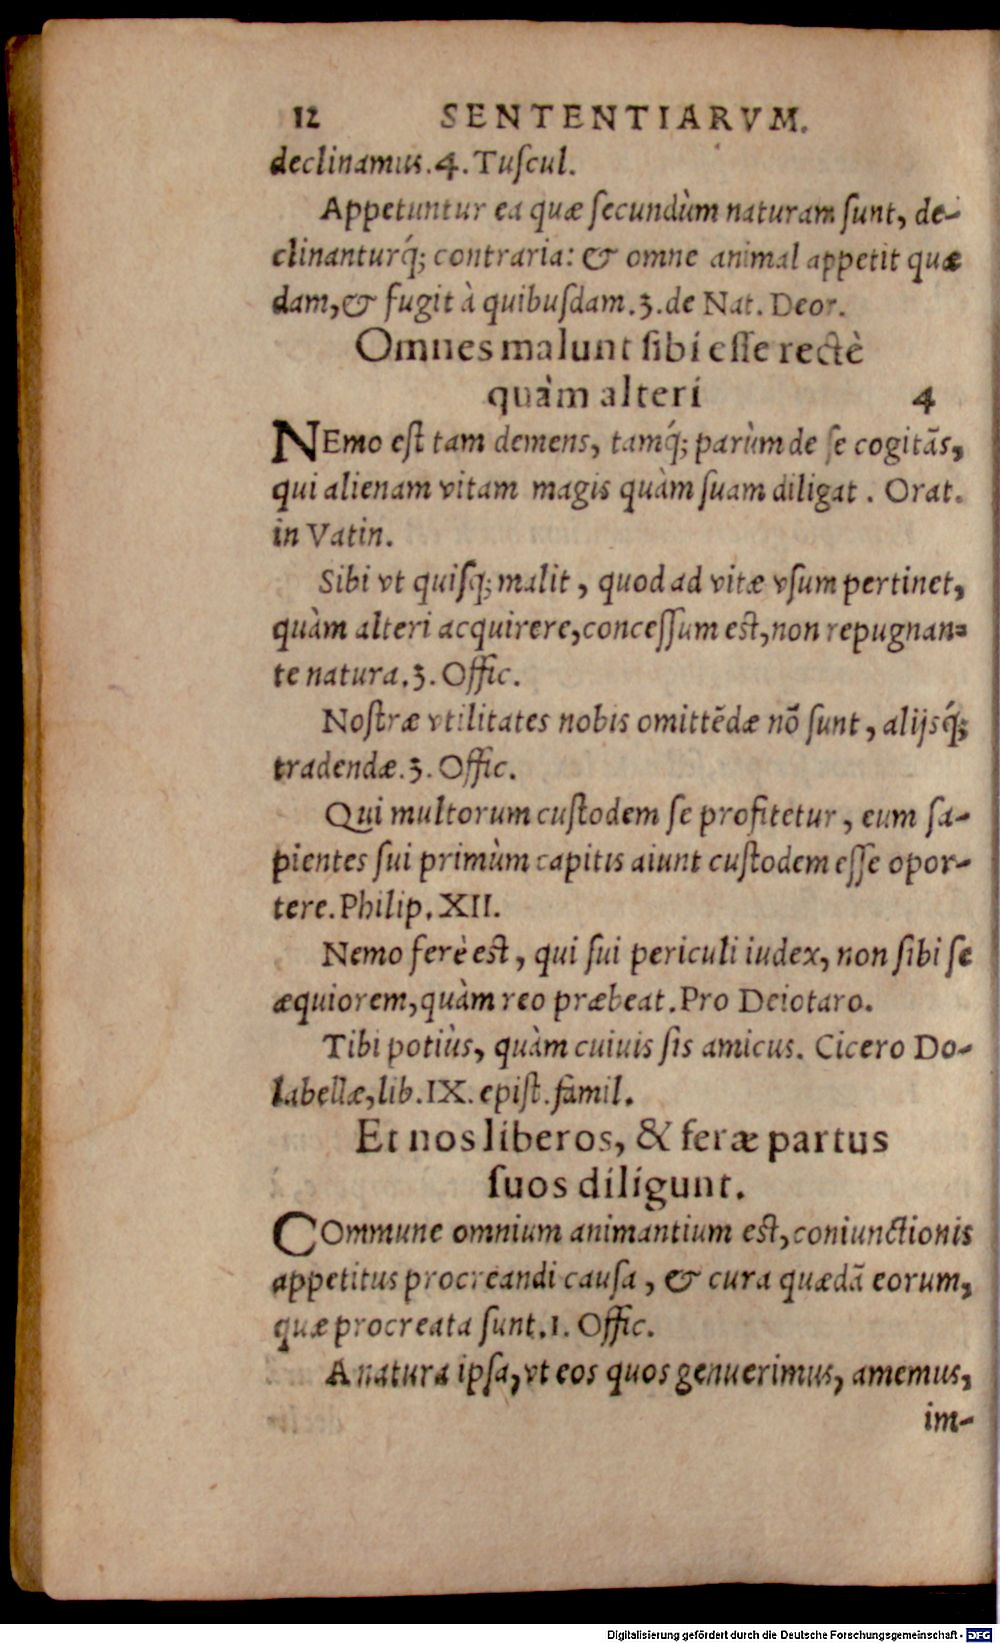 12 SENTENTIARVM.
declinamus.4.Tuſcul.
Appetuntur ea quæ ſecundùm naturam ſunt, de-
clinanturq́; contraria: & omne animal appetit quæ
dam,& fugit à quibuſdam.3.de Nat. Deor.
Omnes malunt ſibi eſſe rectè
quàm alteri 4
NEmo eſt tam demens, tamq́; parùm de ſe cogitãs,
qui alienam vitam magis quàm ſuam diligat. Orat.
in Vatin.
Sibi vt quiſq; malit, quod ad vitæ vſum pertinet,
quàm alteri acquirere,conceſſum eſt,non repugnan=
te natura.3. Offic.
Noſtræ vtilitates nobis omittẽdæ nõ ſunt, alijsq́;
tradendæ.3. Offic.
Qui multorum cuſtodem ſe profitetur, eum ſa-
pientes ſui primùm capitis aiunt cuſtodem eſſe opor-
tere.Philip.XII.
Nemo ferè eſt, qui ſui periculi iudex, non ſibi ſe
æquiorem,quàm reo præbeat.Pro Deiotaro.
Tibi potiùs, quàm cuiuis ſis amicus. Cicero Do-
labellæ,lib.IX.epiſt.famil.
Et nos liberos, & feræ partus
ſuos diligunt.
COmmune omnium animantium eſt,coniunctionis
appetitus procreandi cauſa, & cura quædã eorum,
quæ procreata ſunt.1. Offic.
A natura ipſa,vt eos quos genuerimus, amemus,
im-
Digitalisierung gefördert durch die Deutsche Forschungsgemeinschaft - DFG